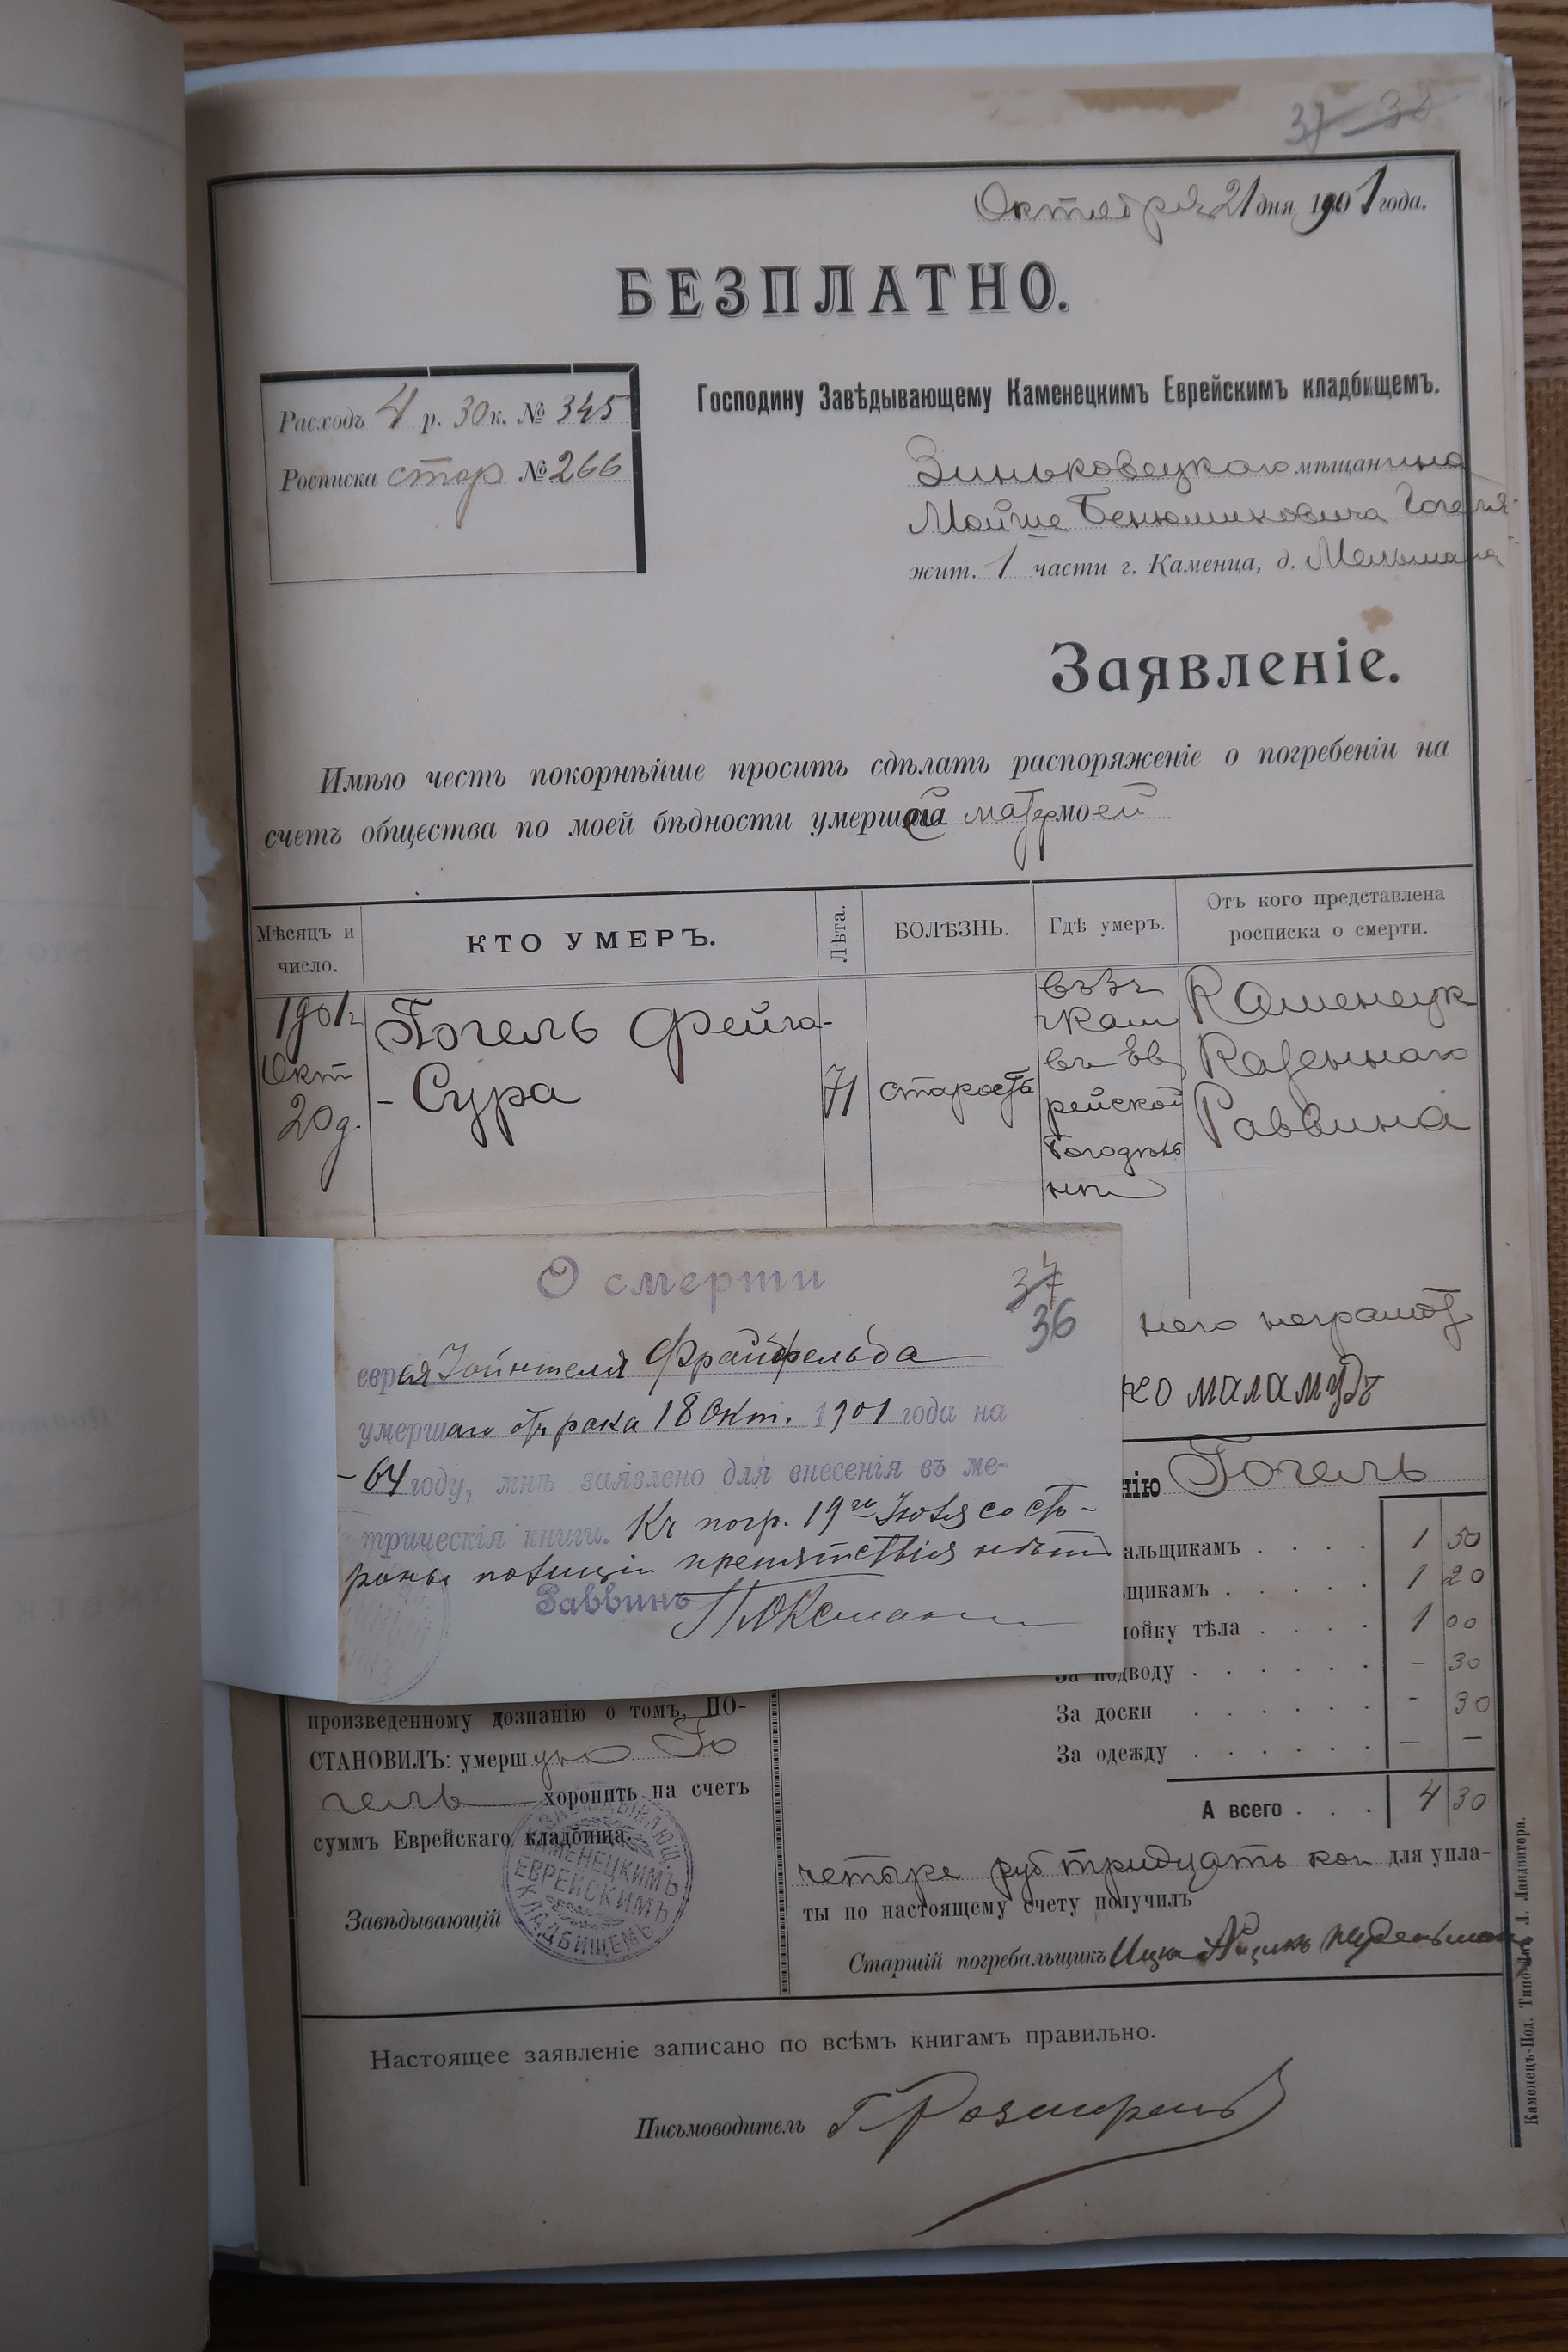 37 30
Октября 21 дня 1901 года.
БЕЗПЛАТНО.
Расходъ 4 р. 30 к. № 345
Росписка стор № 266
Господину Завѣдывающему Каменецкимъ Еврейскимъ кладбищемъ.
Зиньковецкого мѣщанина
Мойше Бенюминовича Гогеля
жит. 1 части г. Каменца, д. Мельмана
Заявленіе.
Имѣю честь покорнѣйше просить сдѣлать распоряженіе о погребеніи на
счетъ общества по моей бѣдности умершей матер моей
Мѣсяцъ и число.
КТО УМЕРЪ.
Лѣта.
БОЛѢЗНЬ.
Гдѣ умеръ.
Отъ кого представлена росписка о смерти.
1901 г
Окт
20 д.
Гогель Фейга-
- Сура
71
старость
въ
г Кам
въ Ев
рейской
богодѣль
ни
Каменецк
Казеннаго
Раввина
О смерти
37
36
еврея Зойнтеля Фрайфельда
умершаго отъ рака 18 Окт. 1901 года на
- 64 году, мнѣ заявлено для внесенія въ ме-
трическія книги. Къ погр. 19го со сто-
роны полиціи препятствія нѣтъ
Раввинъ
него неграмот
ко маламудъ
нію Гогель
альщикамъ . . . . 1 50
щикамъ . . . . . 1 20
мойку тѣла . . . . 1 00
За подводу . . . . . . – 30
За доски . . . . . . - 30
За одежду . . . . . . — –
А всего . . . 4 30
произведенному дознанію о томъ, ПО-
СТАНОВИЛЪ: умершую Го
гель хоронить на счетъ
суммъ Еврейскаго кладбища.
Завѣдывающій
ЗАВѢДЫВАЮЩ
КАМЕНЕЦКИМЪ
ЕВРЕЙСКИМЪ
КЛАДБИЩЕМЪ
четыре руб тридцать коп для упла-
ты по настоящему счету получилъ
Старшій погребальщикъ Ицко
Настоящее заявленіе записано по всѣмъ книгамъ правильно.
Письмоводитель
Каменецъ-Под. Типо-Лит. Л. Ландвигера.